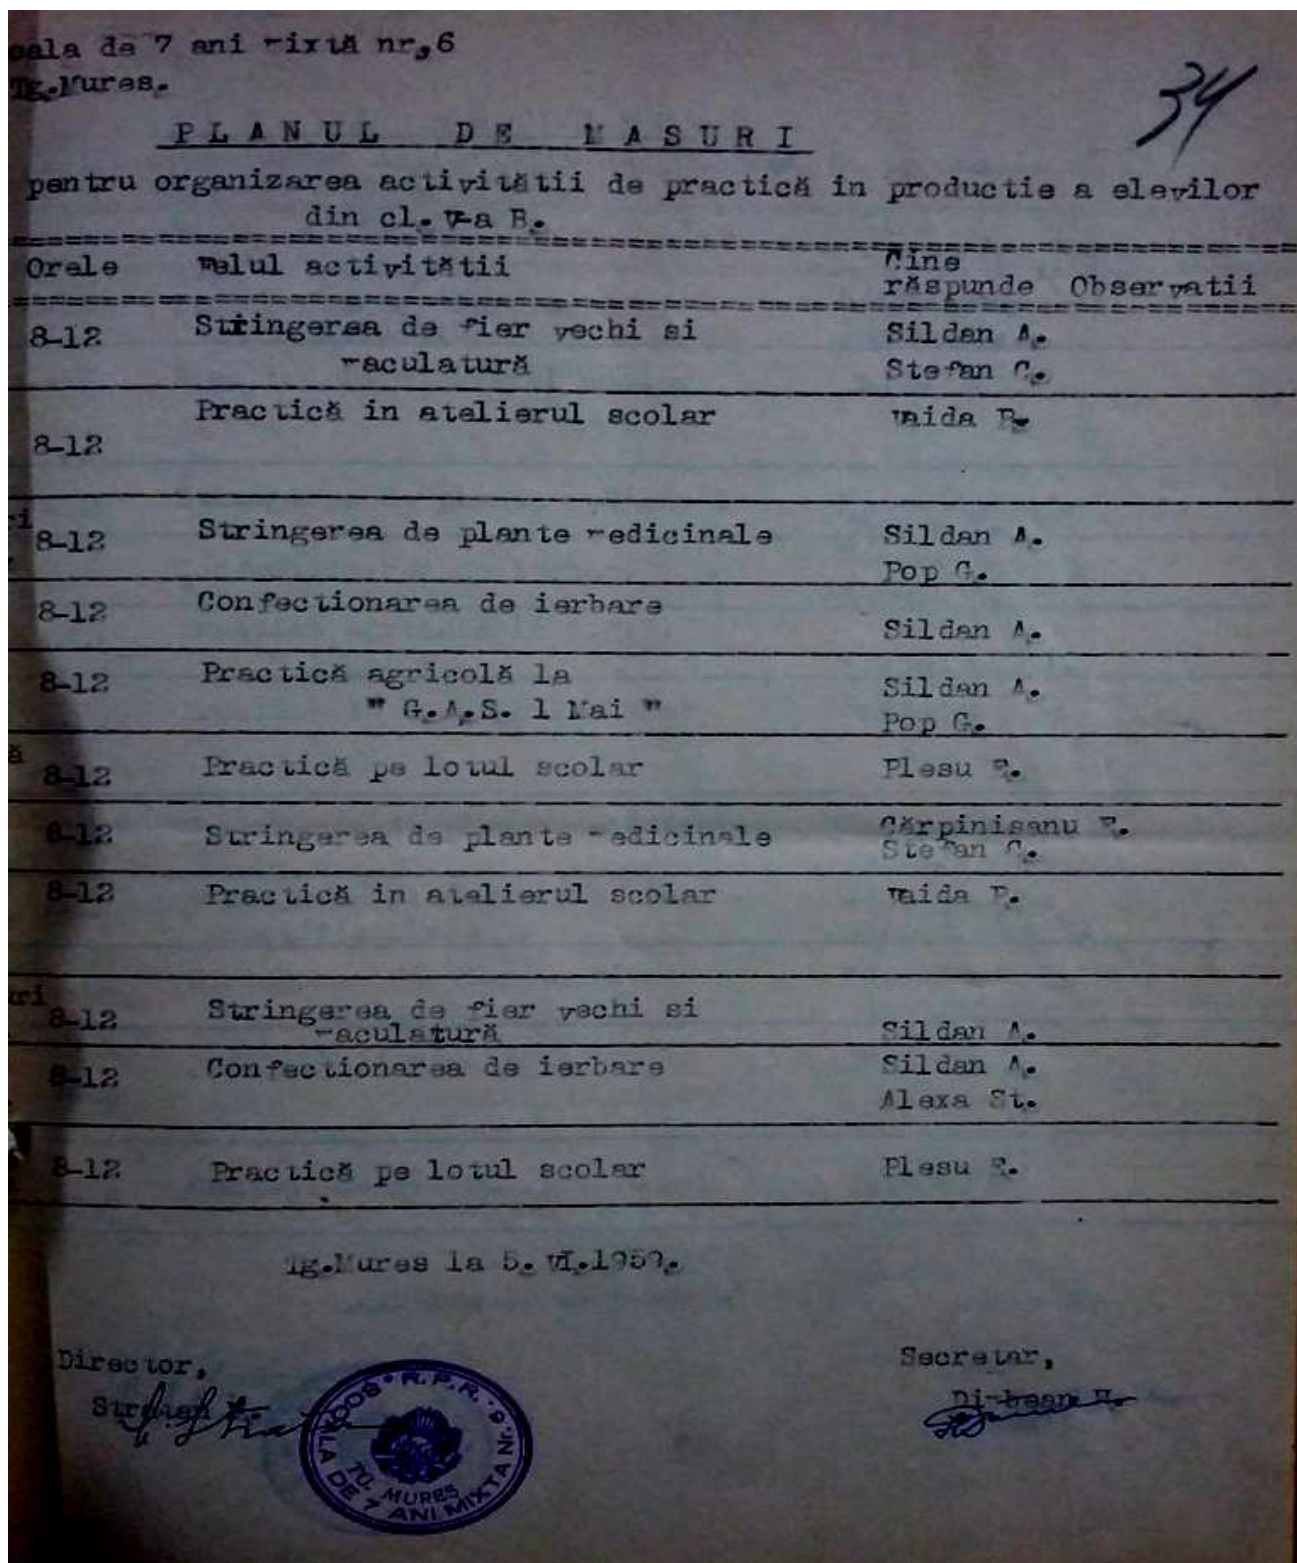 oala de 7 ani mixtă nr,6
Tg.Mures.
34
PLANUL DE MASURI
pentru organizarea activitătii de practică in productie a elevilor
din cl. V-a B.
Orele Felul activitătii Cine
răspunde Observatii
8-12 Stringerea de fier vechi si Sildan A.
maculatură Stefan C.
Practică in atelierul scolar Vaida
8-12
ri
8-12 Stringerea de plante medicinale Sildan A.
Pop G.
8-12 Confectionarea de ierbare
Sildan A.
8-12 Practică agricolă la Sildan A.
" G.A.S. 1 Mai " Pop G.
ă
8-12 Practică pe lotul scolar Plesu
8-12 Stringerea de plante medicinale Cărpinisanu
Stefan C.
8-12 Practică in atelierul scolar Vaida
uri
8-12 Stringerea de fier vechi si
maculatură Sildan A.
8-12 Confectionarea de ierbare Sildan A.
Alexa St.
8-12 Practică pe lotul scolar Plesu
Tg.Mures la 5. VI.1959.
Director, Secretar,
SCOALA DE 7 ANI MIXTA Nr. 6. R.P.R.
TG. MURES